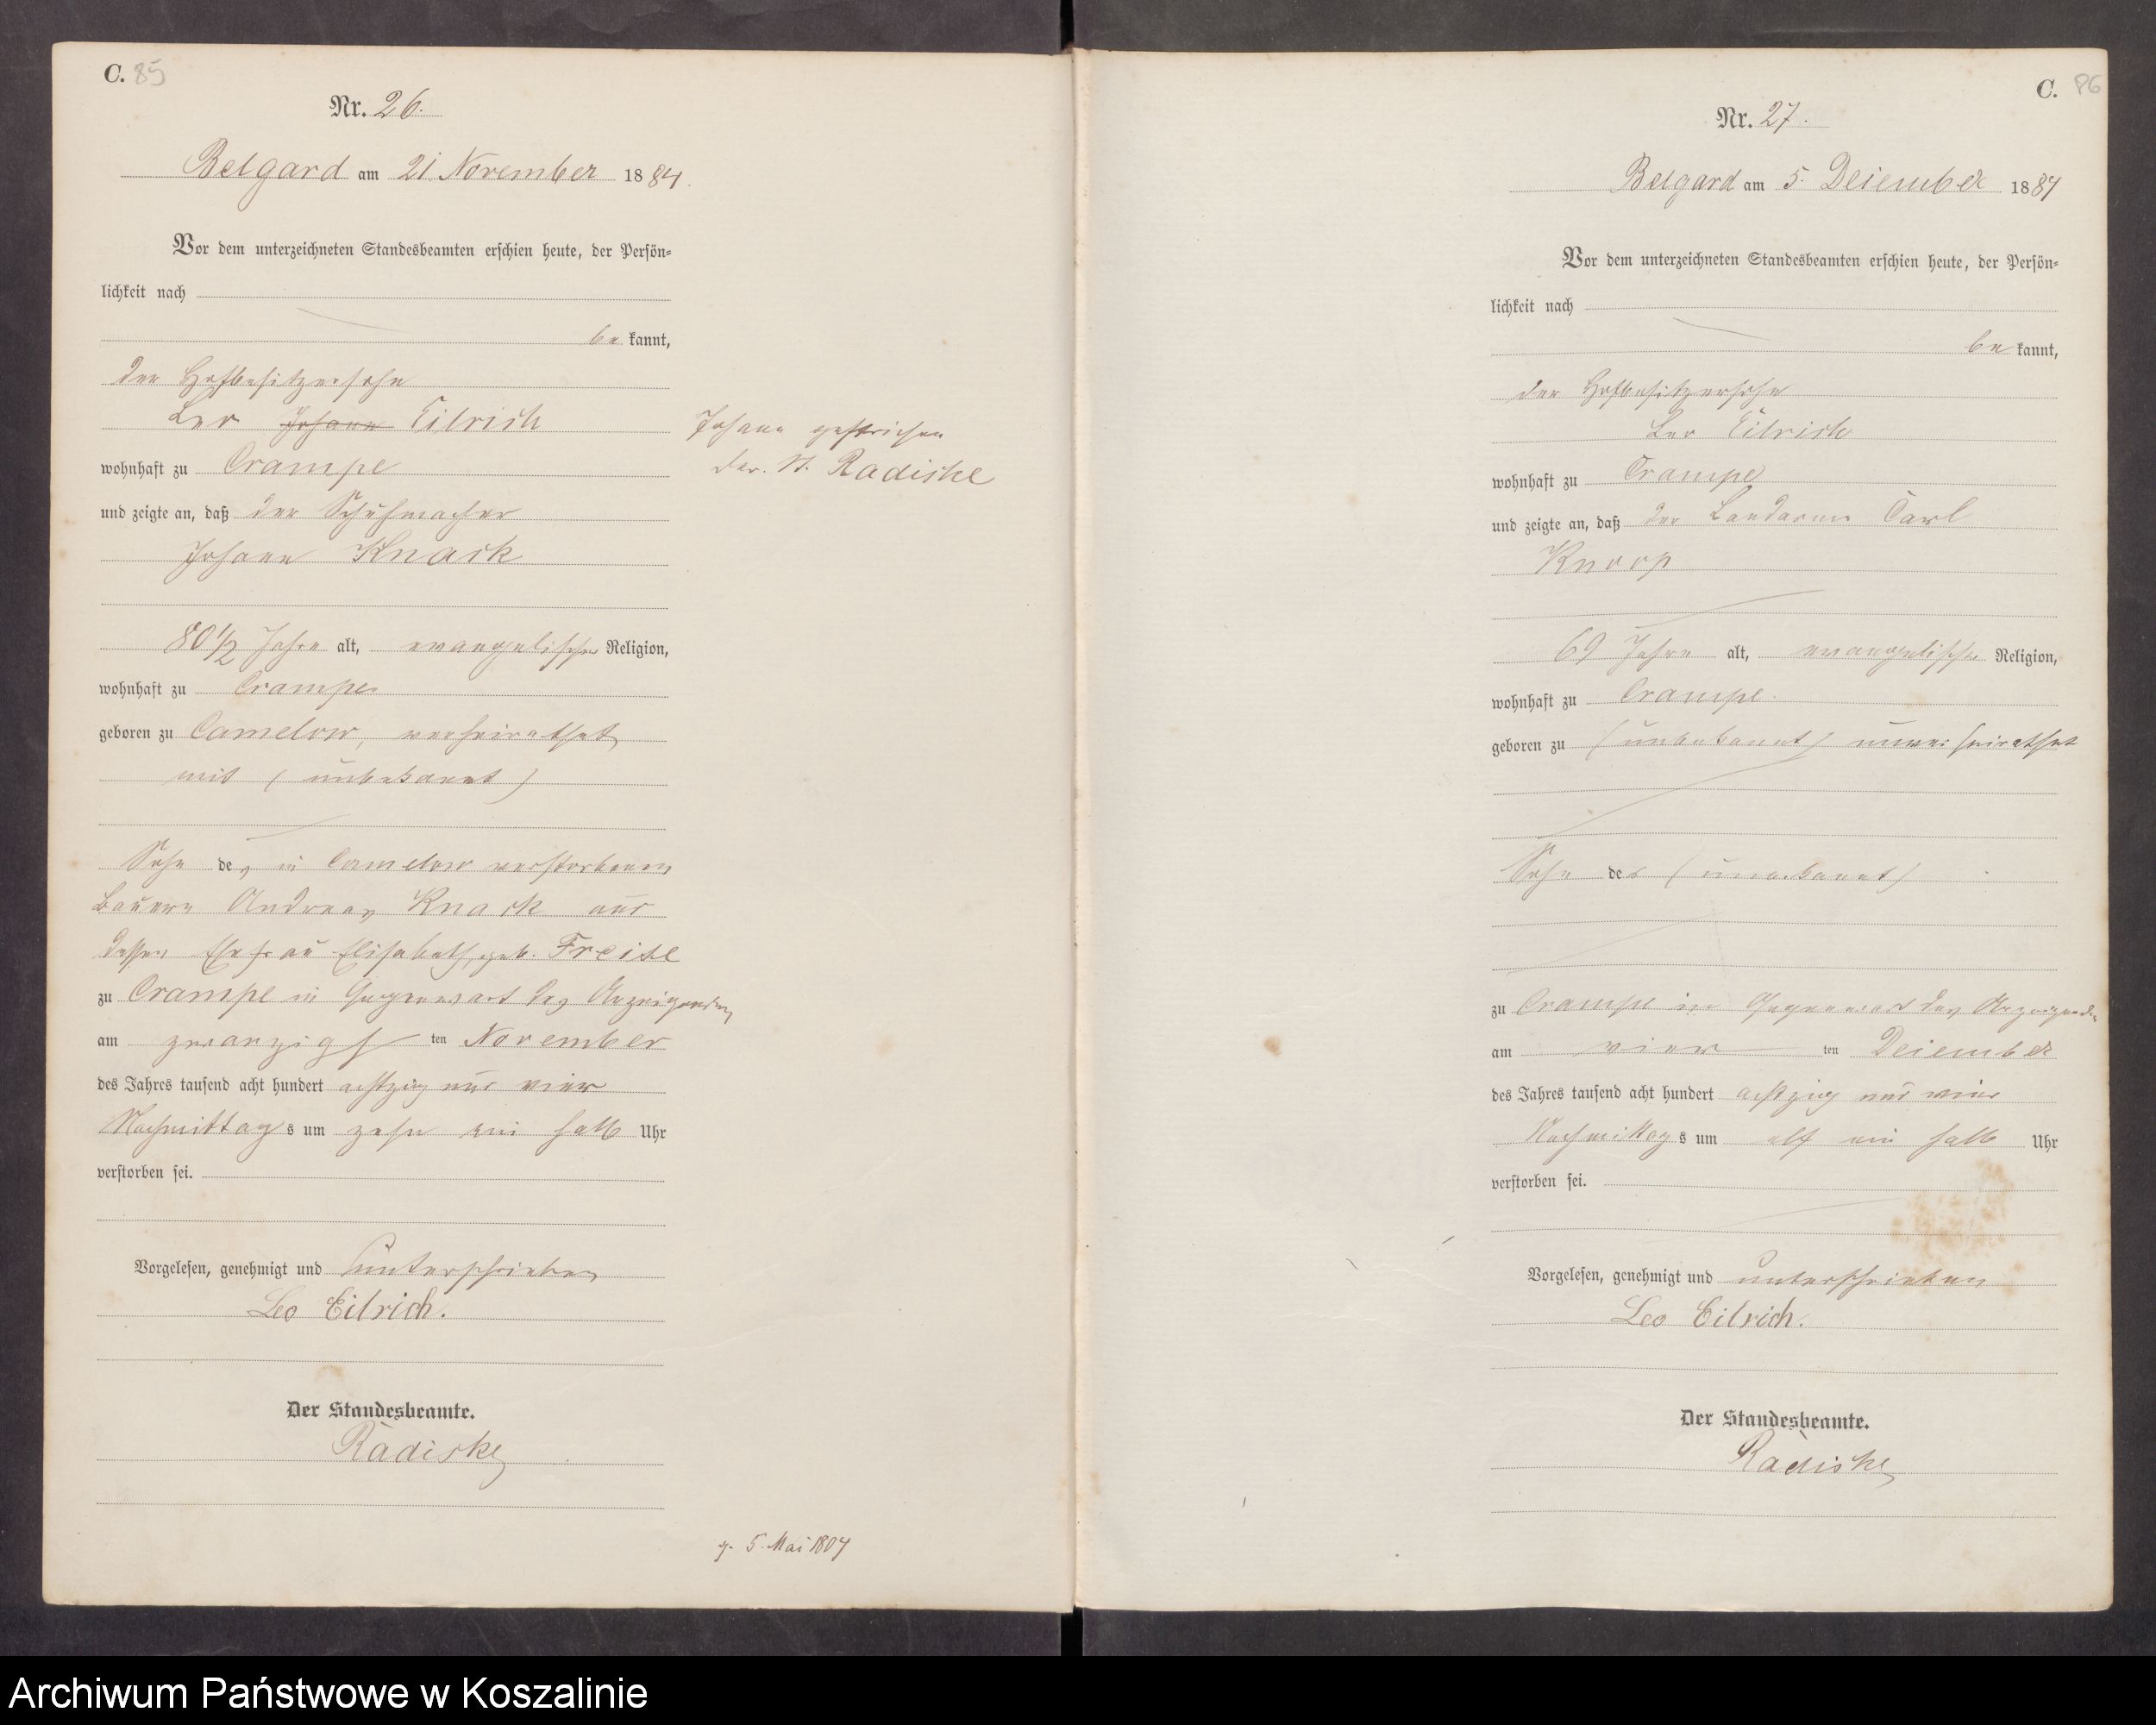 C. 85
Nr. 26.
Belgard am 21 November 1884.
Vor dem unterzeichneten Standesbeamten erschien heute, der Persön-
lichkeit nach
be kannt,
der Hofbesitzersohn
Leo Johann Eilrich
Johann gestrichen
Der. St. Radiske
wohnhaft zu Crampe
und zeigte an, daß der Schuhmacher
Johann Knack
80 1/2 Jahre alt, evangelischer Religion,
wohnhaft zu Crampe
geboren zu Camelow, verheirathet
mit (unbekannt)
Sohn des in Camelow verstorbenen
Bauern Andreas Knack und
dessen Ehefrau Elisabeth, geb.
zu Crampe in Gegenwart des Anzeigenden
am zwanzigs ten November
des Jahres tausend acht hundert achtzig und vier
Nachmittags um zehn ein halb Uhr
verstorben sei.
Vorgelesen, genehmigt und unterschrieben
Leo Eilrich.
Der Standesbeamte.
Radiske
g. 5. Mai 1804
C. 86
Nr. 27.
Belgard am 5. Dezember 1884
Vor dem unterzeichneten Standesbeamten erschien heute, der Persön-
lichkeit nach
be kannt,
der Hofbesitzersohn
Leo Eilrich
wohnhaft zu Crampe
und zeigte an, daß der Landarme Carl
Knoop
69 Jahre alt, evangelischer Religion,
wohnhaft zu Crampe.
geboren zu (unbekannt) unverheirathet
Sohn des (unbekannt)
zu Crampe in Gegenwart des Anzeigenden
am vier ten Dezember
des Jahres tausend acht hundert achtzig und vier
Nachmittags um elf ein halb Uhr
verstorben sei.
Vorgelesen, genehmigt und unterschrieben
Leo Eilrich.
Der Standesbeamte.
Radiske
Archiwum Państwowe w Koszalinie